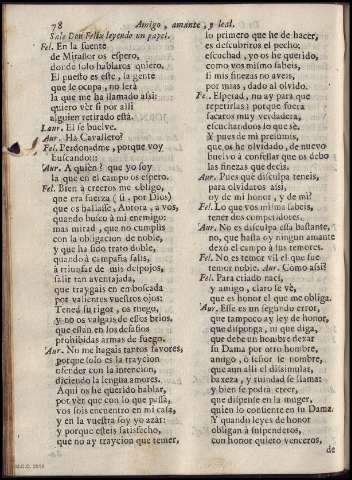 78 Amigo, amante, y leal.
Sale Don Felix leyendo un papel.
Fel. En la fuente
de Miraflor os espero,
donde solo hablaros quiero.
El puesto es este, la gente
que le ocupa, no serà
la que me ha llamado assi:
quiero vèr si por alli
alguien retirado està.
Laur. El se buelve.
Aur. Hà Cavallero?
Fel. Perdonadme, porque voy
buscando::
Aur. A quièn? que yo soy
la que en el campo os espero.
Fel. Bien à creeros me obligo,
que era fuerza ( si, por Dios)
que os hallasse, Aurora, à vos,
quando busco à mi enemigo:
mas mirad, que no cumplis
con la obligacion de noble,
y que ha sido trato doble,
quando à campaña salis,
à triunfar de mis despojos,
salir tan aventajada,
que traygais en emboscada
por valientes vuestros ojos:
Tened su rigor, os ruego,
y no os valgais de essos brios,
que estàn en los desafios
prohibidas armas de fuego.
Aur. No me hagais tantos favores,
porque solo es la traycion
ofender con la intencion,
diciendo la lengua amores.
Aqui os he querido hablar,
por vèr que con lo que passa,
vos sois encuentro en mi casa,
y en la vuestra soy yo azàr:
y porque esteis satisfecho,
que no ay traycion que temer,
lo primero que he de hacer,
es descubriros el pecho:
escuchad, yo os he querido,
como vos mismo sabeis,
si mis finezas no aveis,
por mias, dado al olvido.
Fe. Esperad, no ay para que
repetirlas; porque fuera
sacaros muy verdadera,
escuchandoos lo que sè.
Y pues de mi prefumis,
que os he olvidado, de nuevo
buelvo à confessar que os debo
las finezas que decis.
Aur. Pues què disculpa teneis,
para olvidaros assi,
oy de mi honor, y de mi?
Fel. Lo que vos misma sabeis,
tener dos competidores.
Aur. No es disculpa esta bastante,
no, que hasta oy ningun amante
dexò el campo à sus temores.
Fel. No es temor vil el que fue
temor noble. Aur. Como assi?
Fel. Para criado naci,
y amigo, claro se vè,
que es honor el que me obliga.
Aur. Esse es un segundo error,
que tampoco ay ley de honor,
que disponga, ni que diga,
que debe un hombre dexar
su Dama por otro hombre,
amigo, ò señor se nombre,
que aun alli el dissimular,
baxeza, y ruindad se llama:
y bien se podrà creer,
que dispense en la muger,
quien lo consiente en su Dama.
Y quando leyes de honor
obligan à suspenderos,
con honor quieto venceros,
de